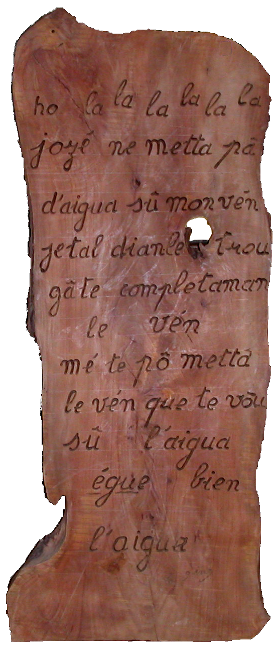 ho la la la la la la
jozé ne metta pâ
d'aigua sû mon vén
jetal dianle trou
gâte completaman
le vén
mé te pô metta
le vén que te vôu
sû l'aigua
égue bien
l'aigua